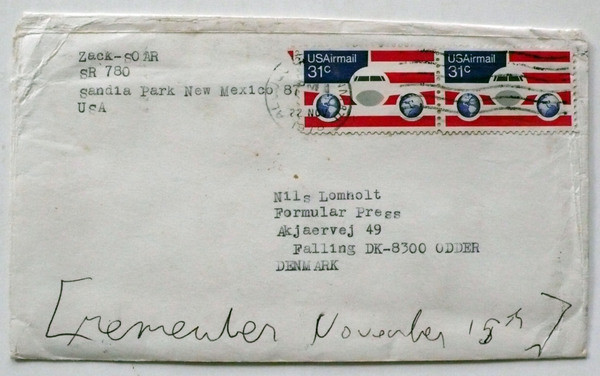 Zack-SOAR
SR 780
Sandia Park New Mexico 87
USA
USAirmail
31c
USAirmail
31c
22 NOV
Nils Lomholt
Formular Press
Akjaervej 49
Falling DK-8300 ODDER
DENMARK
[remember November 18th]